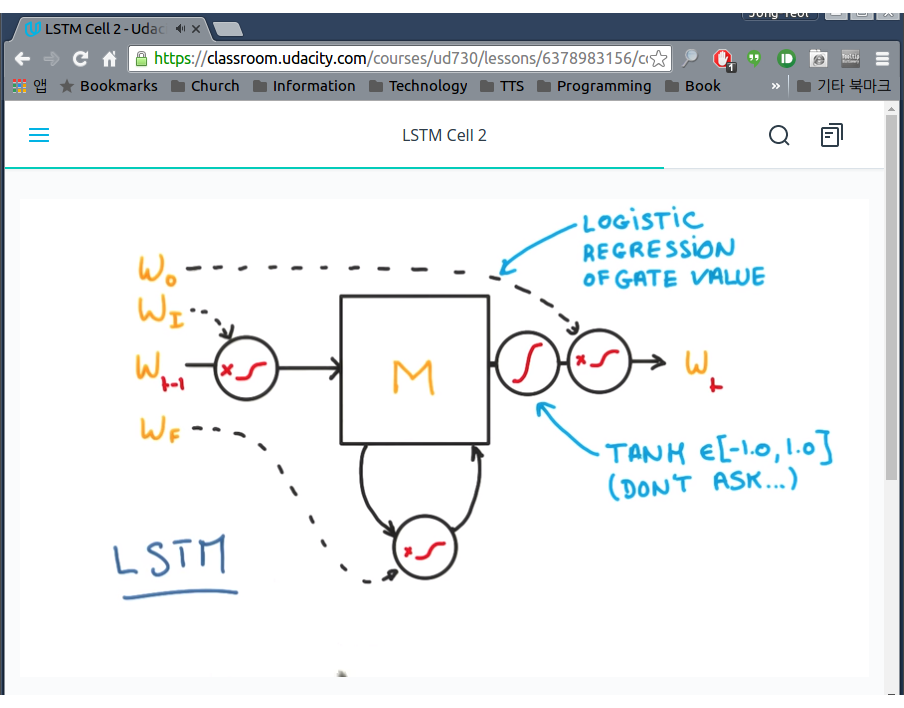 LSTM Cell 2 - Udac
https://classroom.udacity.com/courses/ud730/lessons/6378983156/c
1
앱 Bookmarks Church Information Technology TTS Programming Book » 기타 북마크
LSTM Cell 2
LOGISTIC
REGRESSION
OF GATE VALUE
Wo
WI
Wt-1
WF
M
Wt
TANH ∈[-1.0, 1.0]
(DON'T ASK...)
LSTM